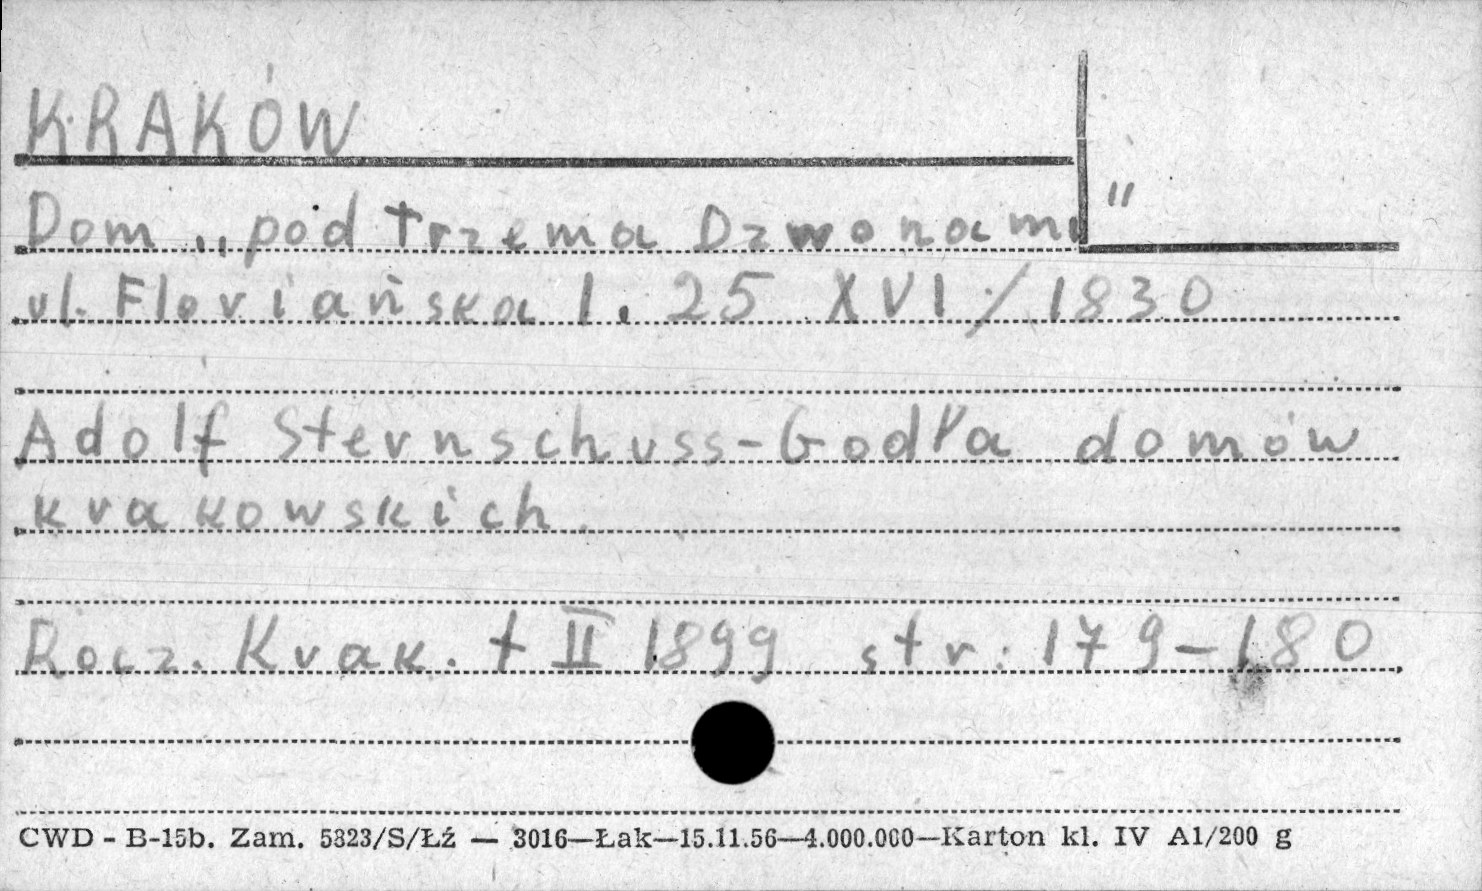 KRAKÓW
Dom „pod Trzema Dzwonami"
ul. Floriańska l. 25 XVI/1830
Adolf Sternschuss-Godła domów
krakowskich.
Rocz. Krak. t II 1899 str: 179-180
CWD - B-15b. Zam. 5823/S/Łź — 3016—Łak—15.11.56—4.000.000—Karton kl. IV A1/200 g